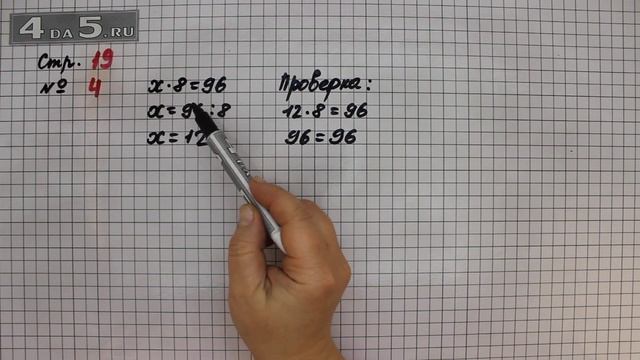 4 ДА 5.RU
Стр. 19
№ 4
x · 8 = 96
x = 96 : 8
x = 12
Проверка:
12 · 8 = 96
96 = 96